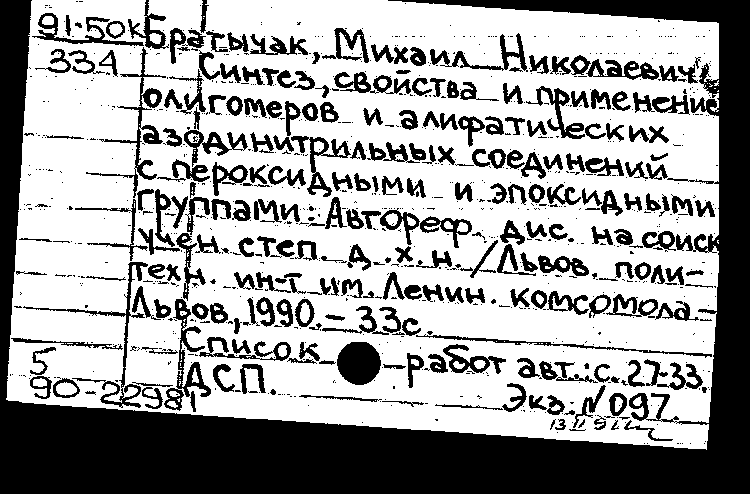 91-50к Братычак, Михаил Николаевич.
334 Синтез, свойства и применение
олигомеров и алифатических
азодинитрильных соединений
с пероксидными и эпоксидными
группами: Автореф. дис. на соиск
учен. степ. д.х.н. / Львов. поли-
техн. ин-т им. Ленин. комсомола -
Львов, 1990. - 33с.
Список работ авт.: с. 27-33.
5 ДСП. Экз. N097.
90-2298